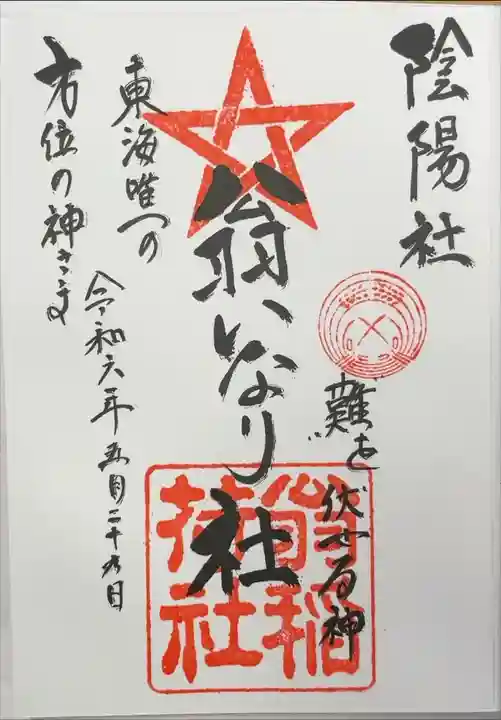 陰陽社
難を伏せる神
翁いなり社
東海唯一の
方位の神さま
令和六年五月二十九日
翁稲
荷社